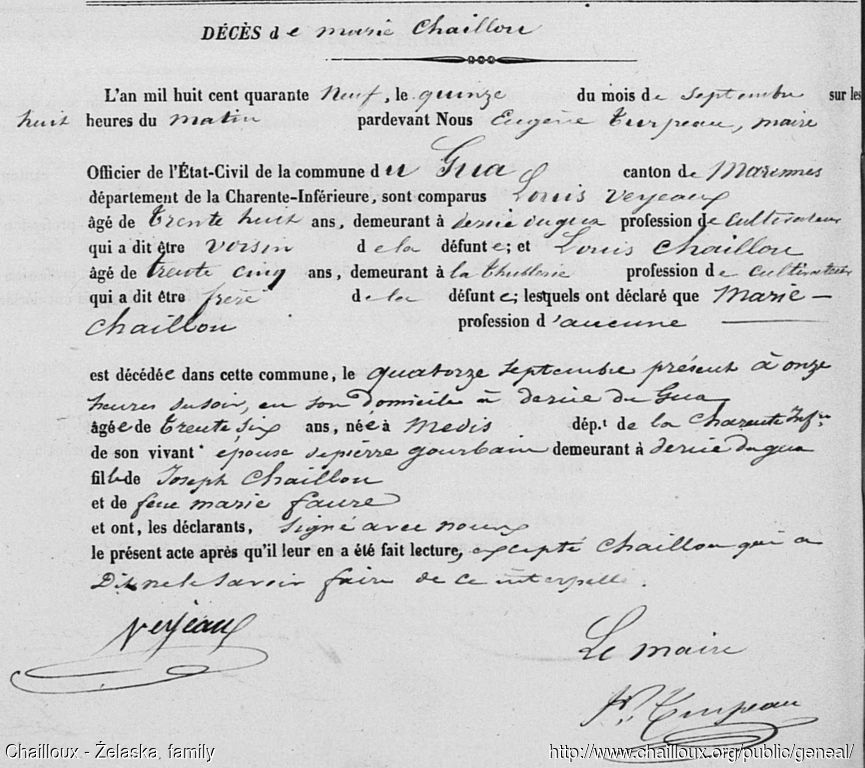 DÉCÈS de marie Chaillou
L'an mil huit cent quarante Neuf, le quinze du mois de Septembre sur les
huit heures du matin pardevant Nous Eugène Turpeau, maire
Officier de l'État-Civil de la commune du Gua canton de Marennes
département de la Charente-Inférieure, sont comparus Louis Verjeaux
âgé de trente huit ans, demeurant à dercie du gua profession de Cultivateur
qui a dit être voisin de la défunte; et Louis Chaillou
âgé de trente cinq ans, demeurant à la thublerie profession de cultivateur
qui a dit être frère de la défunte; lesquels ont déclaré que Marie
Chaillou profession d'aucune
est décédée dans cette commune, le quatorze Septembre présent à onze
heures du soir, en son domicile à dercie du Gua
âgée de trente six ans, née à Medis dép.t de la Charente Infre
de son vivant épouse de pierre gourbain demeurant à dercie du gua
fille de Joseph Chaillou
et de feue marie faure
et ont, les déclarants, signé avec nous
le présent acte après qu'il leur en a été fait lecture, excepté Chaillou qui a
Dit ne le Savoir faire de ce interpellé.
Verjeaux
Le maire
Turpeau
Chailloux - Želaska, family http://www.chailloux.org/public/geneal/